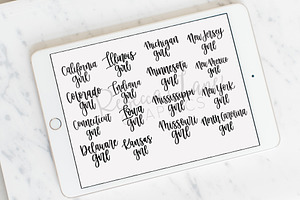 California
girl
Illinois
girl
Michigan
girl
New Jersey
girl
Colorado
girl
Indiana
girl
Minnesota
girl
New Mexico
girl
Connecticut
girl
Iowa
girl
Mississippi
girl
New York
girl
Delaware
girl
Kansas
girl
Missouri
girl
North Carolina
girl
GRAPHICS